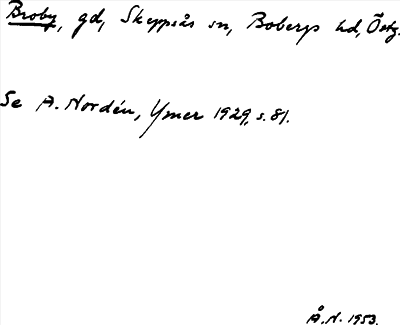 Broby, gd, Skeppsås sn, Bobergs hd, Östg.
Se A. Nordén, Ymer 1929, s. 81.
Å.N. 1953.